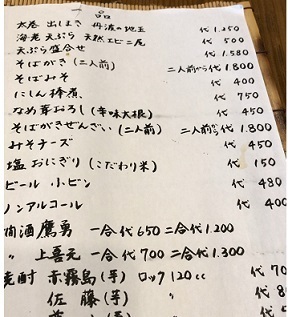 一品
太巻 出しまき 丹波の地玉 代1.250
海老天ぷら 天然エビ二尾 代500
天ぷら盛合せ 代1.580
そばがき(二人前) 二人前から代1.800
そばみそ 代400
にしん棒煮 代750
なめ茸おろし(辛味大根) 代450
そばがきぜんざい(二人前) 二人前から代1.800
みそチーズ 代450
塩おにぎり(こだわり米) 代150
ビール 小ビン 代480
ノンアルコール 代400
燗酒 鷹勇 一合代650 二合代1.200
〃 上喜元 一合代700 二合代1.300
焼酎 赤霧島(芋) ロック120cc 代70
佐藤(芋) 〃 代8